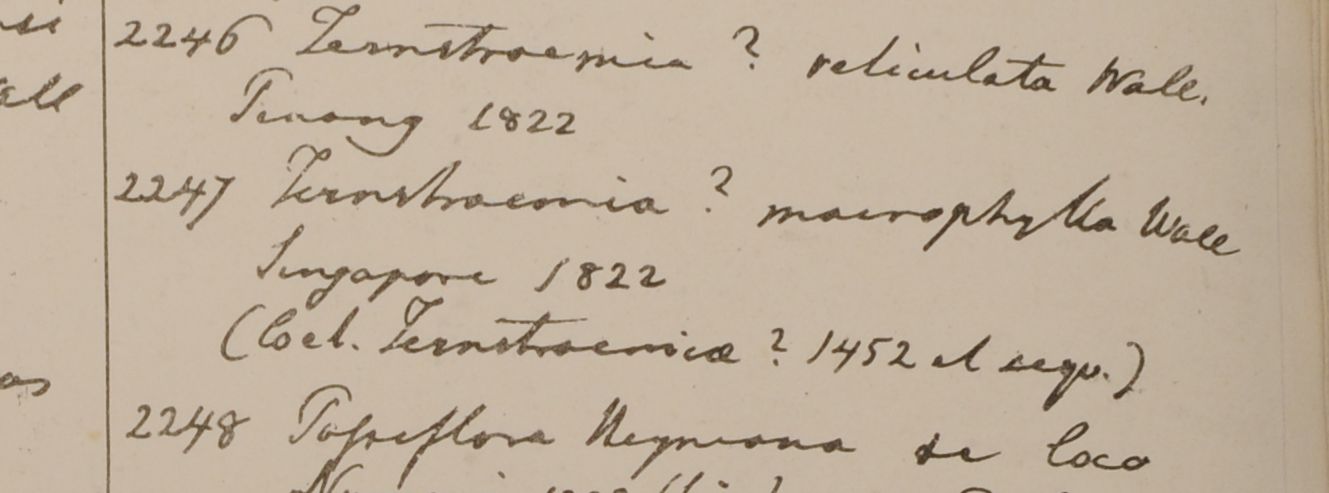 2246 Ternstroemia ? reticulata Wall.
Penang 1822
2247 Ternstraemia ? macrophylla Wall
Singapore 1822
(Coel. Ternstroemiae ? 1452 et seqv.)
2248 Passiflora de loco